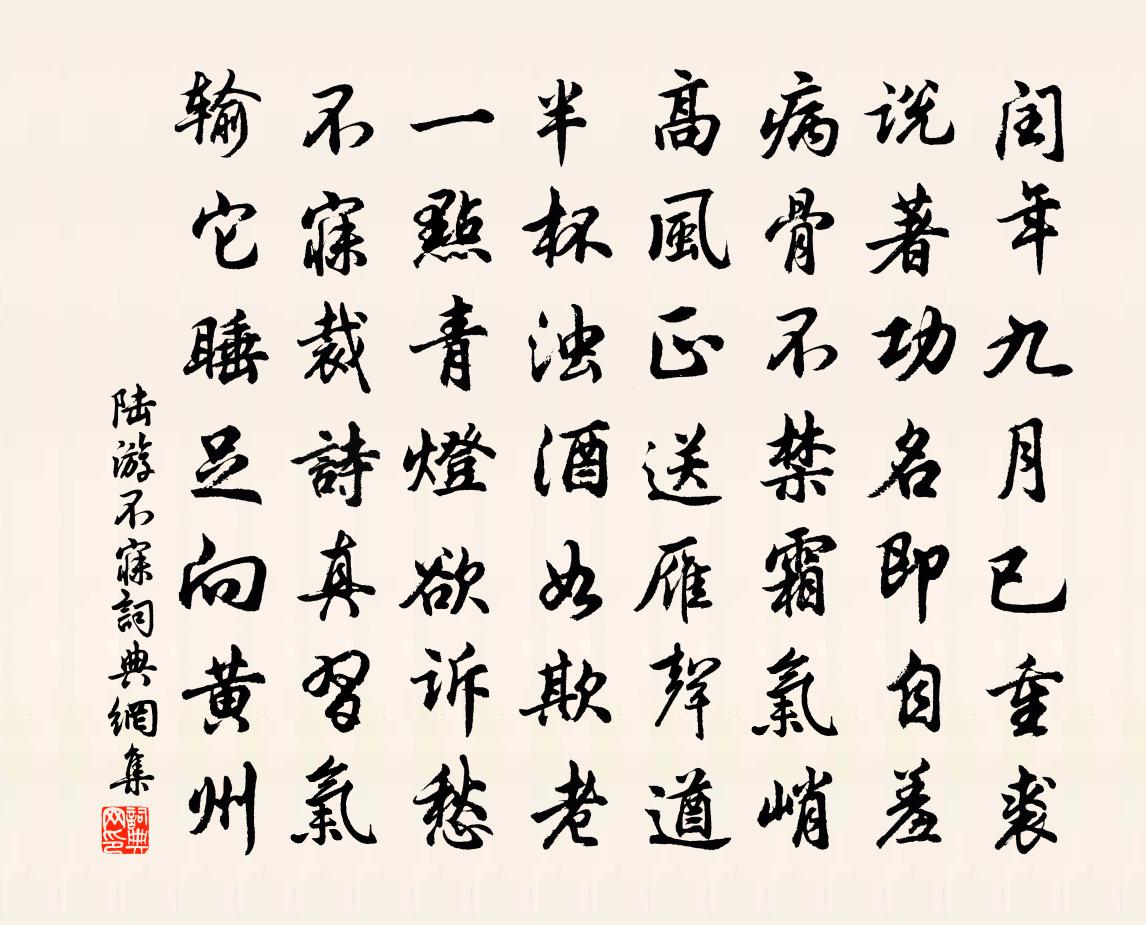 閏年九月已重裘
說著功名即自羞
病骨不禁霜氣峭
高風正送雁聲遒
半杯濁酒如欺老
一點青燈欲訴愁
不寐裁詩真習氣
輸它睡足向黃州
陸游不寐詞典網集
詞典网印